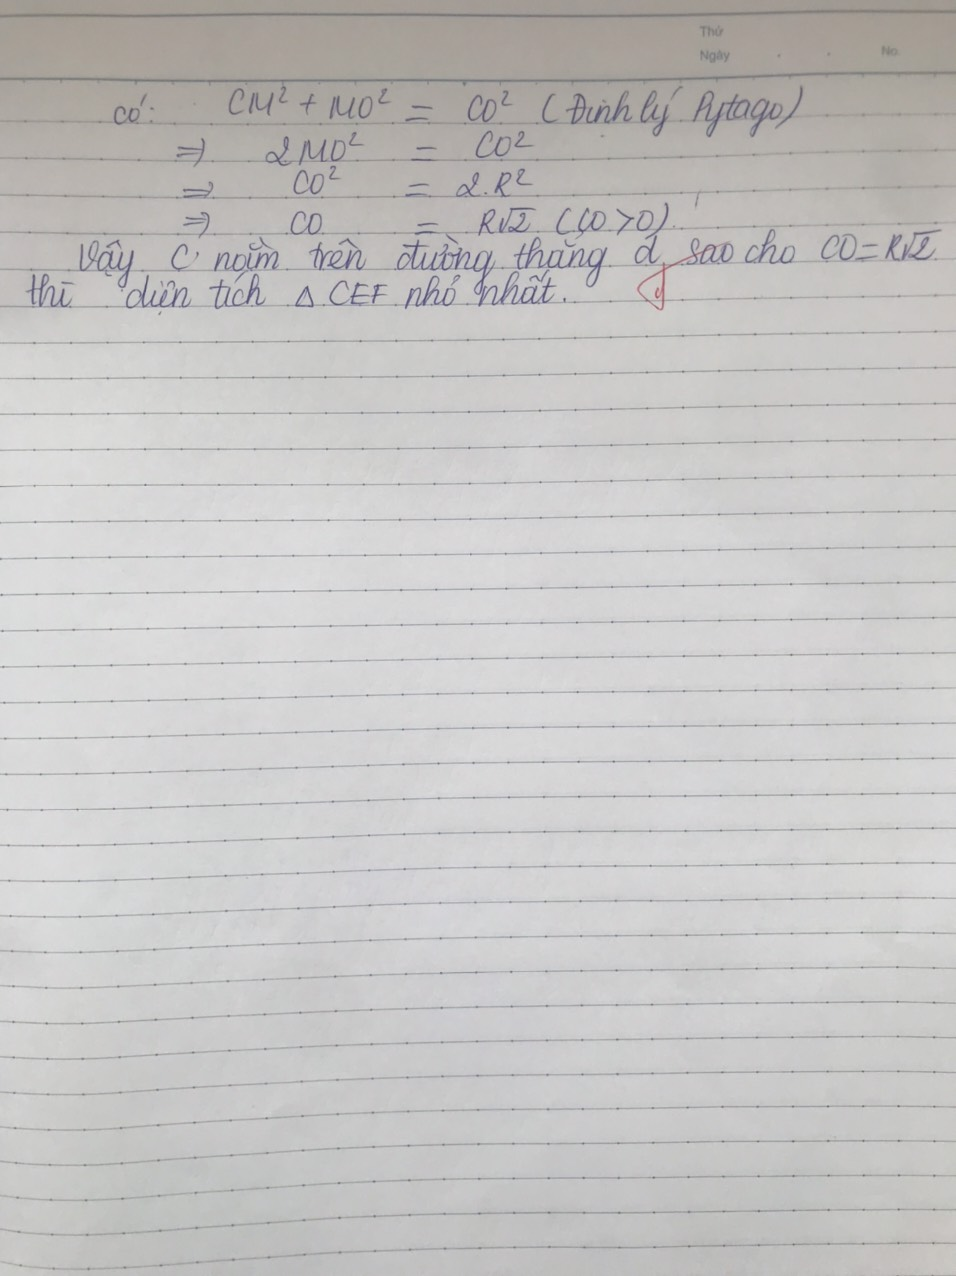 Thứ
Ngày . . No.
có: CM² + MO² = CO² (Định lý Pytago)
⇒ 2MO² = CO²
⇒ CO² = 2.R²
⇒ CO = R√2 (CO>0)
Vậy C nằm trên đường thẳng d sao cho CO=R√2
thì diện tích △ CEF nhỏ nhất.